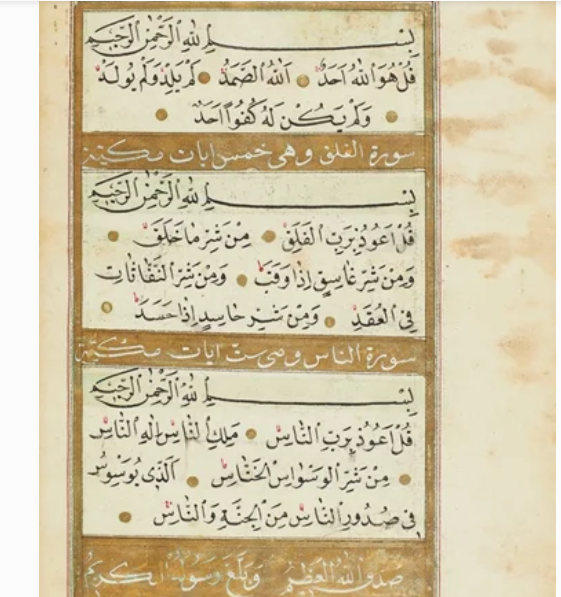 بِسْمِ اللهِ الرَّحْمٰنِ الرَّحِيمِ
قُلْ هُوَ اللهُ اَحَدٌ اَللهُ الصَّمَدُ لَمْ يَلِدْ وَلَمْ يُولَدْ
وَلَمْ يَكُنْ لَهُ كُفُوًا اَحَدٌ
سورة الفلق وهى خمس ايات مكية
بِسْمِ اللهِ الرَّحْمٰنِ الرَّحِيمِ
قُلْ اَعُوذُ بِرَبِّ الْفَلَقِ مِنْ شَرِّ مَا خَلَقَ
وَمِنْ شَرِّ غَاسِقٍ اِذَا وَقَبَ وَمِنْ شَرِّ النَّفَّاثَاتِ
فِى الْعُقَدِ وَمِنْ شَرِّ حَاسِدٍ اِذَا حَسَدَ
سورة الناس وهى ست ايات مكية
بِسْمِ اللهِ الرَّحْمٰنِ الرَّحِيمِ
قُلْ اَعُوذُ بِرَبِّ النَّاسِ مَلِكِ النَّاسِ اِلٰهِ النَّاسِ
مِنْ شَرِّ الْوَسْوَاسِ الْخَنَّاسِ اَلَّذِى يُوَسْوِسُ
فِى صُدُورِ النَّاسِ مِنَ الْجِنَّةِ وَالنَّاسِ
صدق الله العظيم وبلغ رسوله الكريم